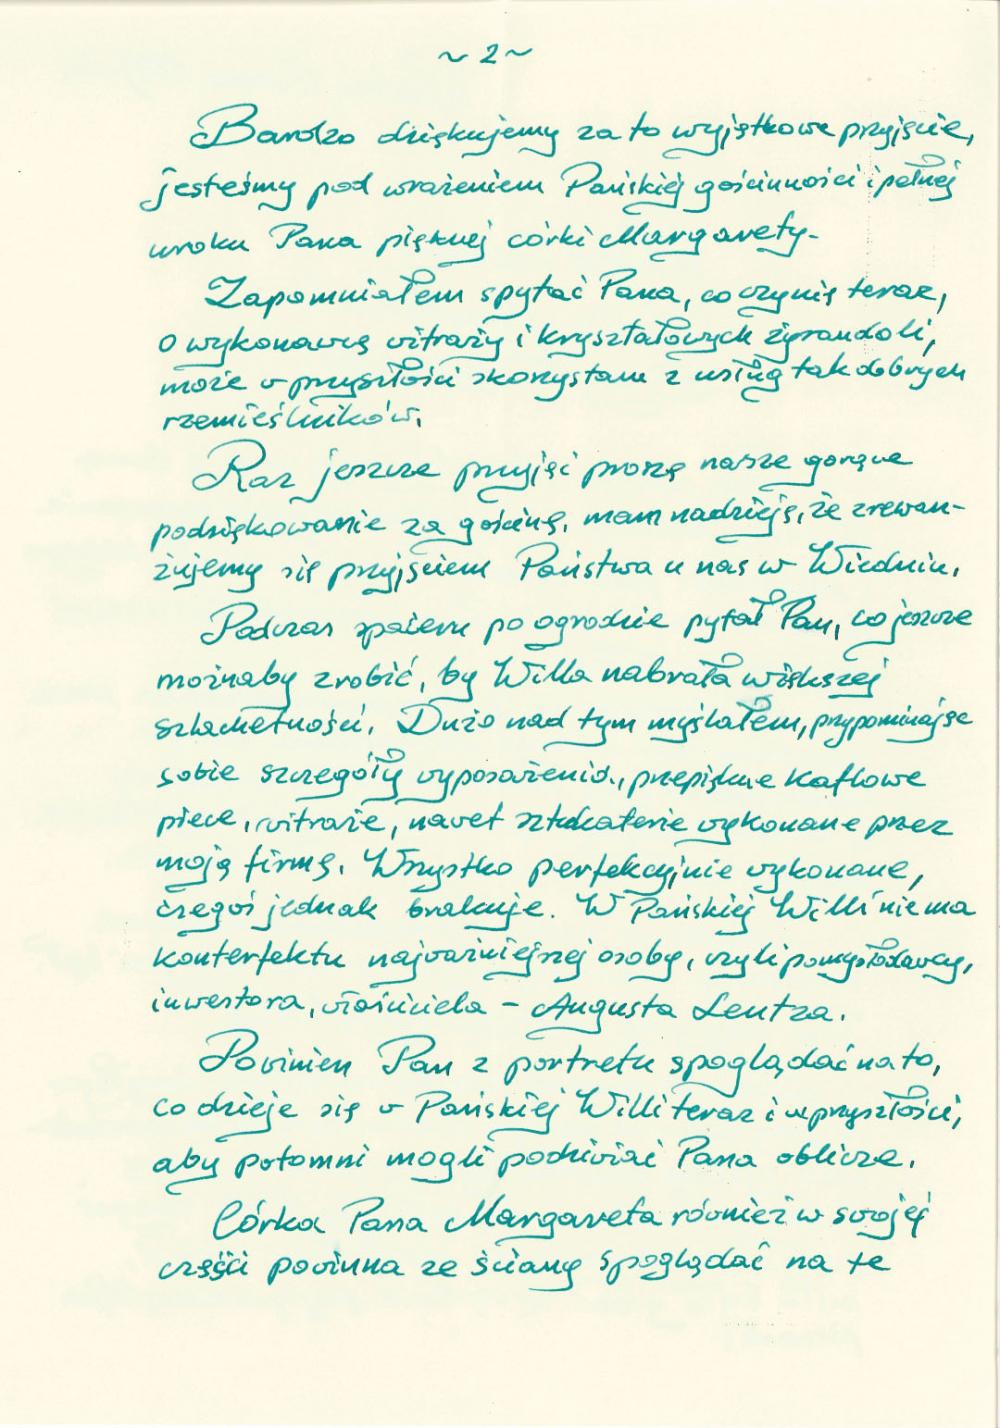 ~ 2 ~
Bardzo dziękujemy za to wyjątkowe przyjęcie,
jesteśmy pod wrażeniem Pańskiej gościnności i pełnej
uroku Pana pięknej córki Margarety.
Zapomniałem spytać Pana, co czynię teraz,
o wykonawcę witraży i kryształowych żyrandoli,
może w przyszłości skorzystam z usług tak dobrych
rzemieślników.
Raz jeszcze przyjąć proszę nasze gorące
podziękowanie za gościnę, mam nadzieję, że zrewan-
żujemy się przyjęciem Państwa u nas w Wiedniu.
Podczas spaceru po ogrodzie pytał Pan, co jeszcze
możnaby zrobić, by Willa nabrała większej
szlachetności. Dużo nad tym myślałem, przypominając
sobie szczegóły wyposażenia, przepiękne kaflowe
piece, witraże, nawet sztukaterie wykonane przez
moją firmę. Wszystko perfekcyjnie wykonane,
czegoś jednak brakuje. W Pańskiej Willi nie ma
konterfektu najważniejszej osoby, czyli pomysłodawcy,
inwestora, właściciela – Augusta Lentza.
Powinien Pan z portretu spoglądać na to,
co dzieje się w Pańskiej Willi teraz i w przyszłości,
aby potomni mogli podziwiać Pana oblicze.
Córka Pana Margareta również w swojej
części powinna ze ściany spoglądać na te